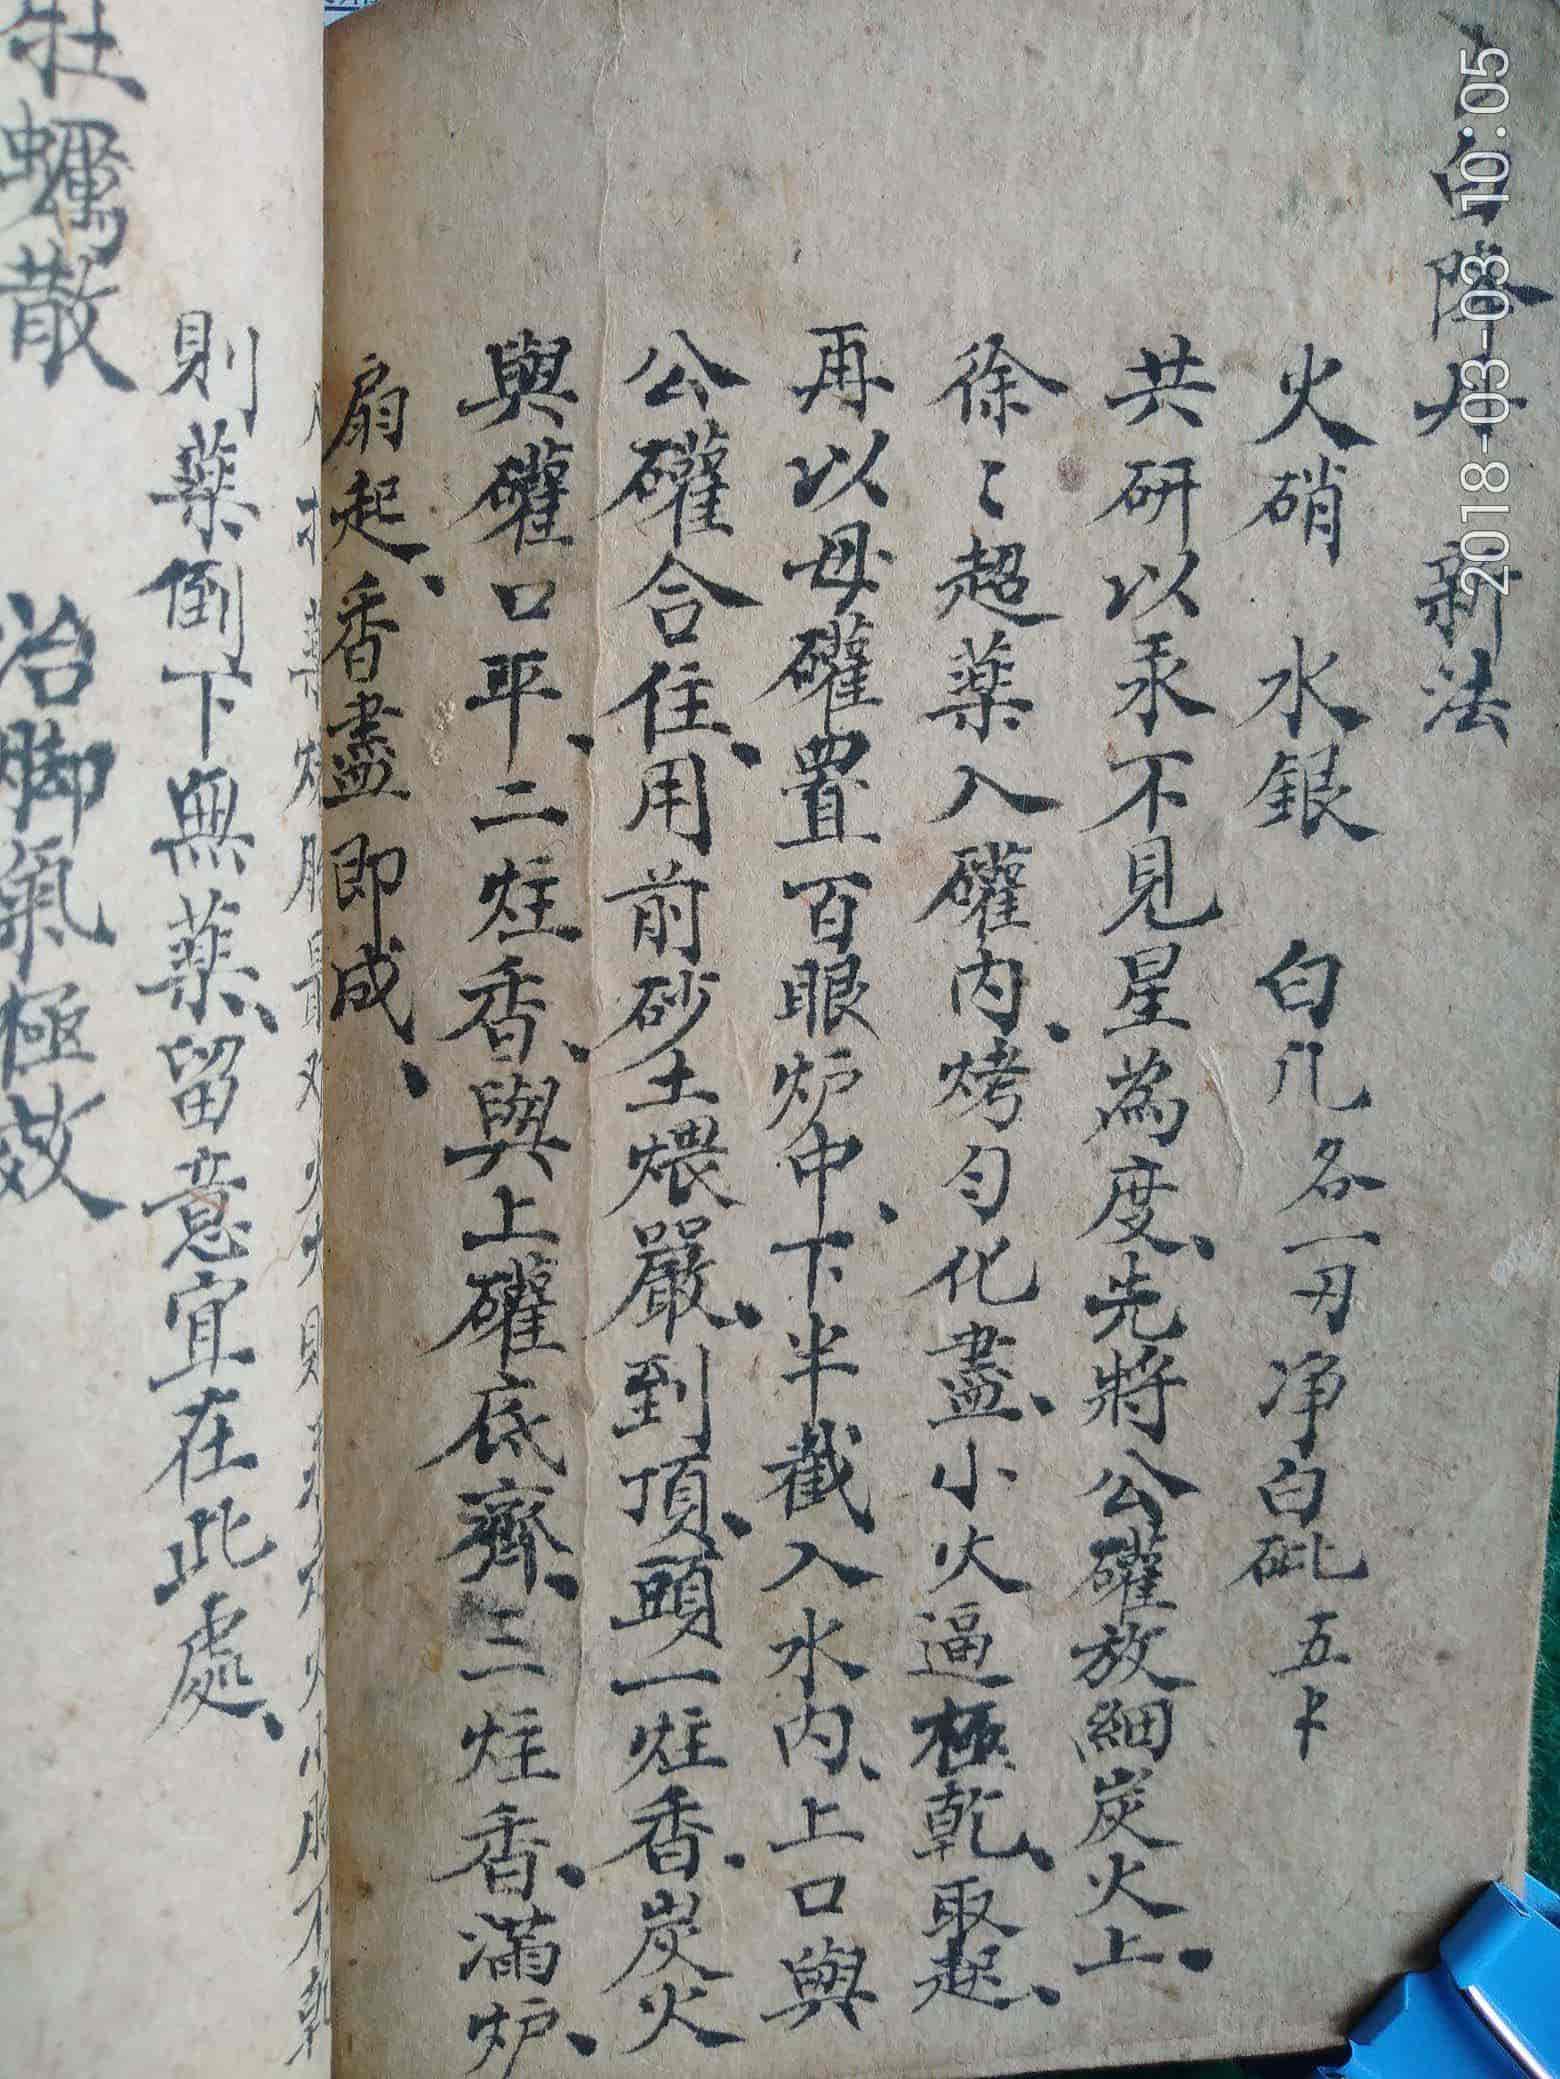 白降丹 新法
火硝 水銀 白凡各一刄净白砒五卜
共研以汞不見星為度、先將公礶放細炭火上、
徐〻超薬入礶内、烤匀化盡、小火逼極乾、取起、
再以母礶置百眼炉中、下半截入水内、上口與
公礶合住、用前砂土煨嚴、到頂、頭一炷香、炭火
與礶口平、二炷香、與上礶底齊、三炷香、滿炉、
扇起、香盡即成、
則薬倒下無薬、留意宜在此處、
牡蠣散 治脚氣極效
2018-03-03 10:05